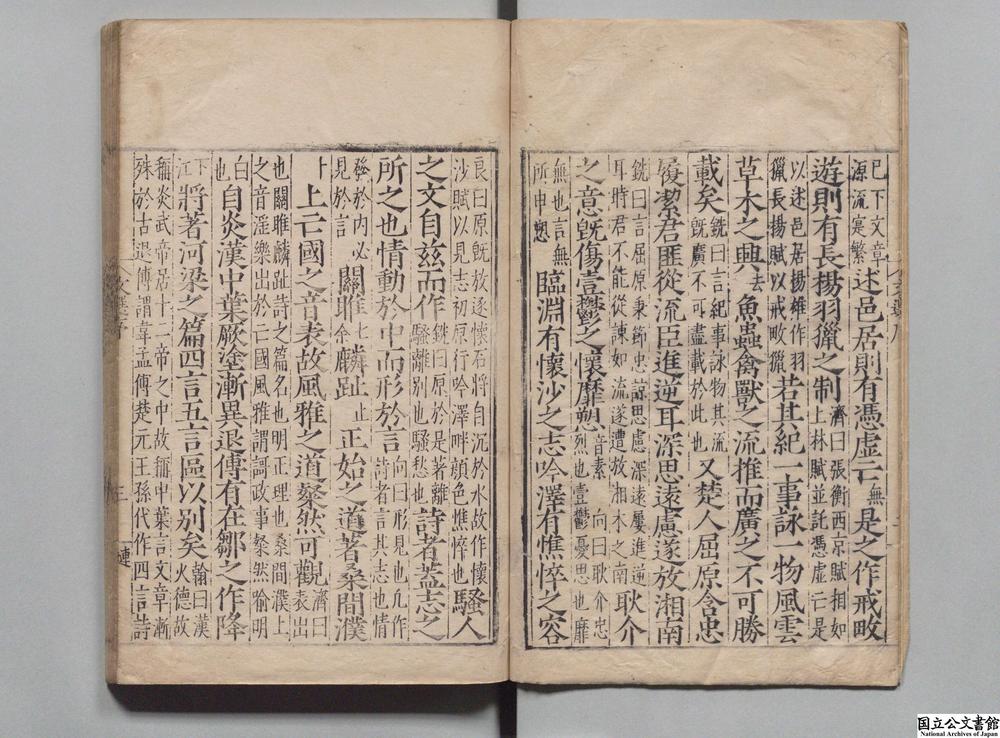 已下文章
源流寔繁
述邑居則有憑虛亡無是之作戒畋
遊則有長揚羽獵之制
濟曰張衡西京賦相如
上林賦並託憑虛亡是
以述邑居揚雄作羽
獵長揚賦以戒畋獵
若其紀一事詠一物風雲
草木之興去魚蟲禽獸之流推而廣之不可勝
載矣
銑曰言紀事詠物其流
旣廣不可盡載於此也
又楚人屈原含忠
履絜君匪從流臣進逆耳深思遠慮遂放湘南
銑曰言屈原秉節忠諒思慮深遠屢進逆
耳時君不能從諫如流遂遭放湘木之南
耿介
之意旣傷壹鬱之懷靡愬
音素 向曰耿介忠
烈也壹鬱憂思也靡
無也言無
所申愬
臨淵有懷沙之志吟澤有憔悴之容
良曰原旣放逐懷石將自沉於水故作懷
沙賦以見志初原行吟澤畔顔色憔悴也
騷人
之文自兹而作
銑曰原於是著離
騷離別也騷愁也
詩者蓋志之
所之也情動於中而形於言
向曰形見也凡作
詩者言其志也情
發於内必
見於言
關雎七余麟趾止正始之道著桑間濮
卜上亡國之音表故風雅之道粲然可觀
濟曰
表出
也關雎麟趾詩之篇名也明正理也桑間濮上
之音淫樂出於亡國風雅謂謌政事粲然喻明
白
也
自炎漢中葉厥塗漸異退傅有在鄒之作降
下江將著河梁之篇四言五言區以別矣
翰曰漢
火德故
稱炎武帝居十二帝之中故稱中葉言文章漸
殊於古退傅謂韋孟傅楚元王孫代作四言詩
文選序
三
国立公文書館
National Archives of Japan